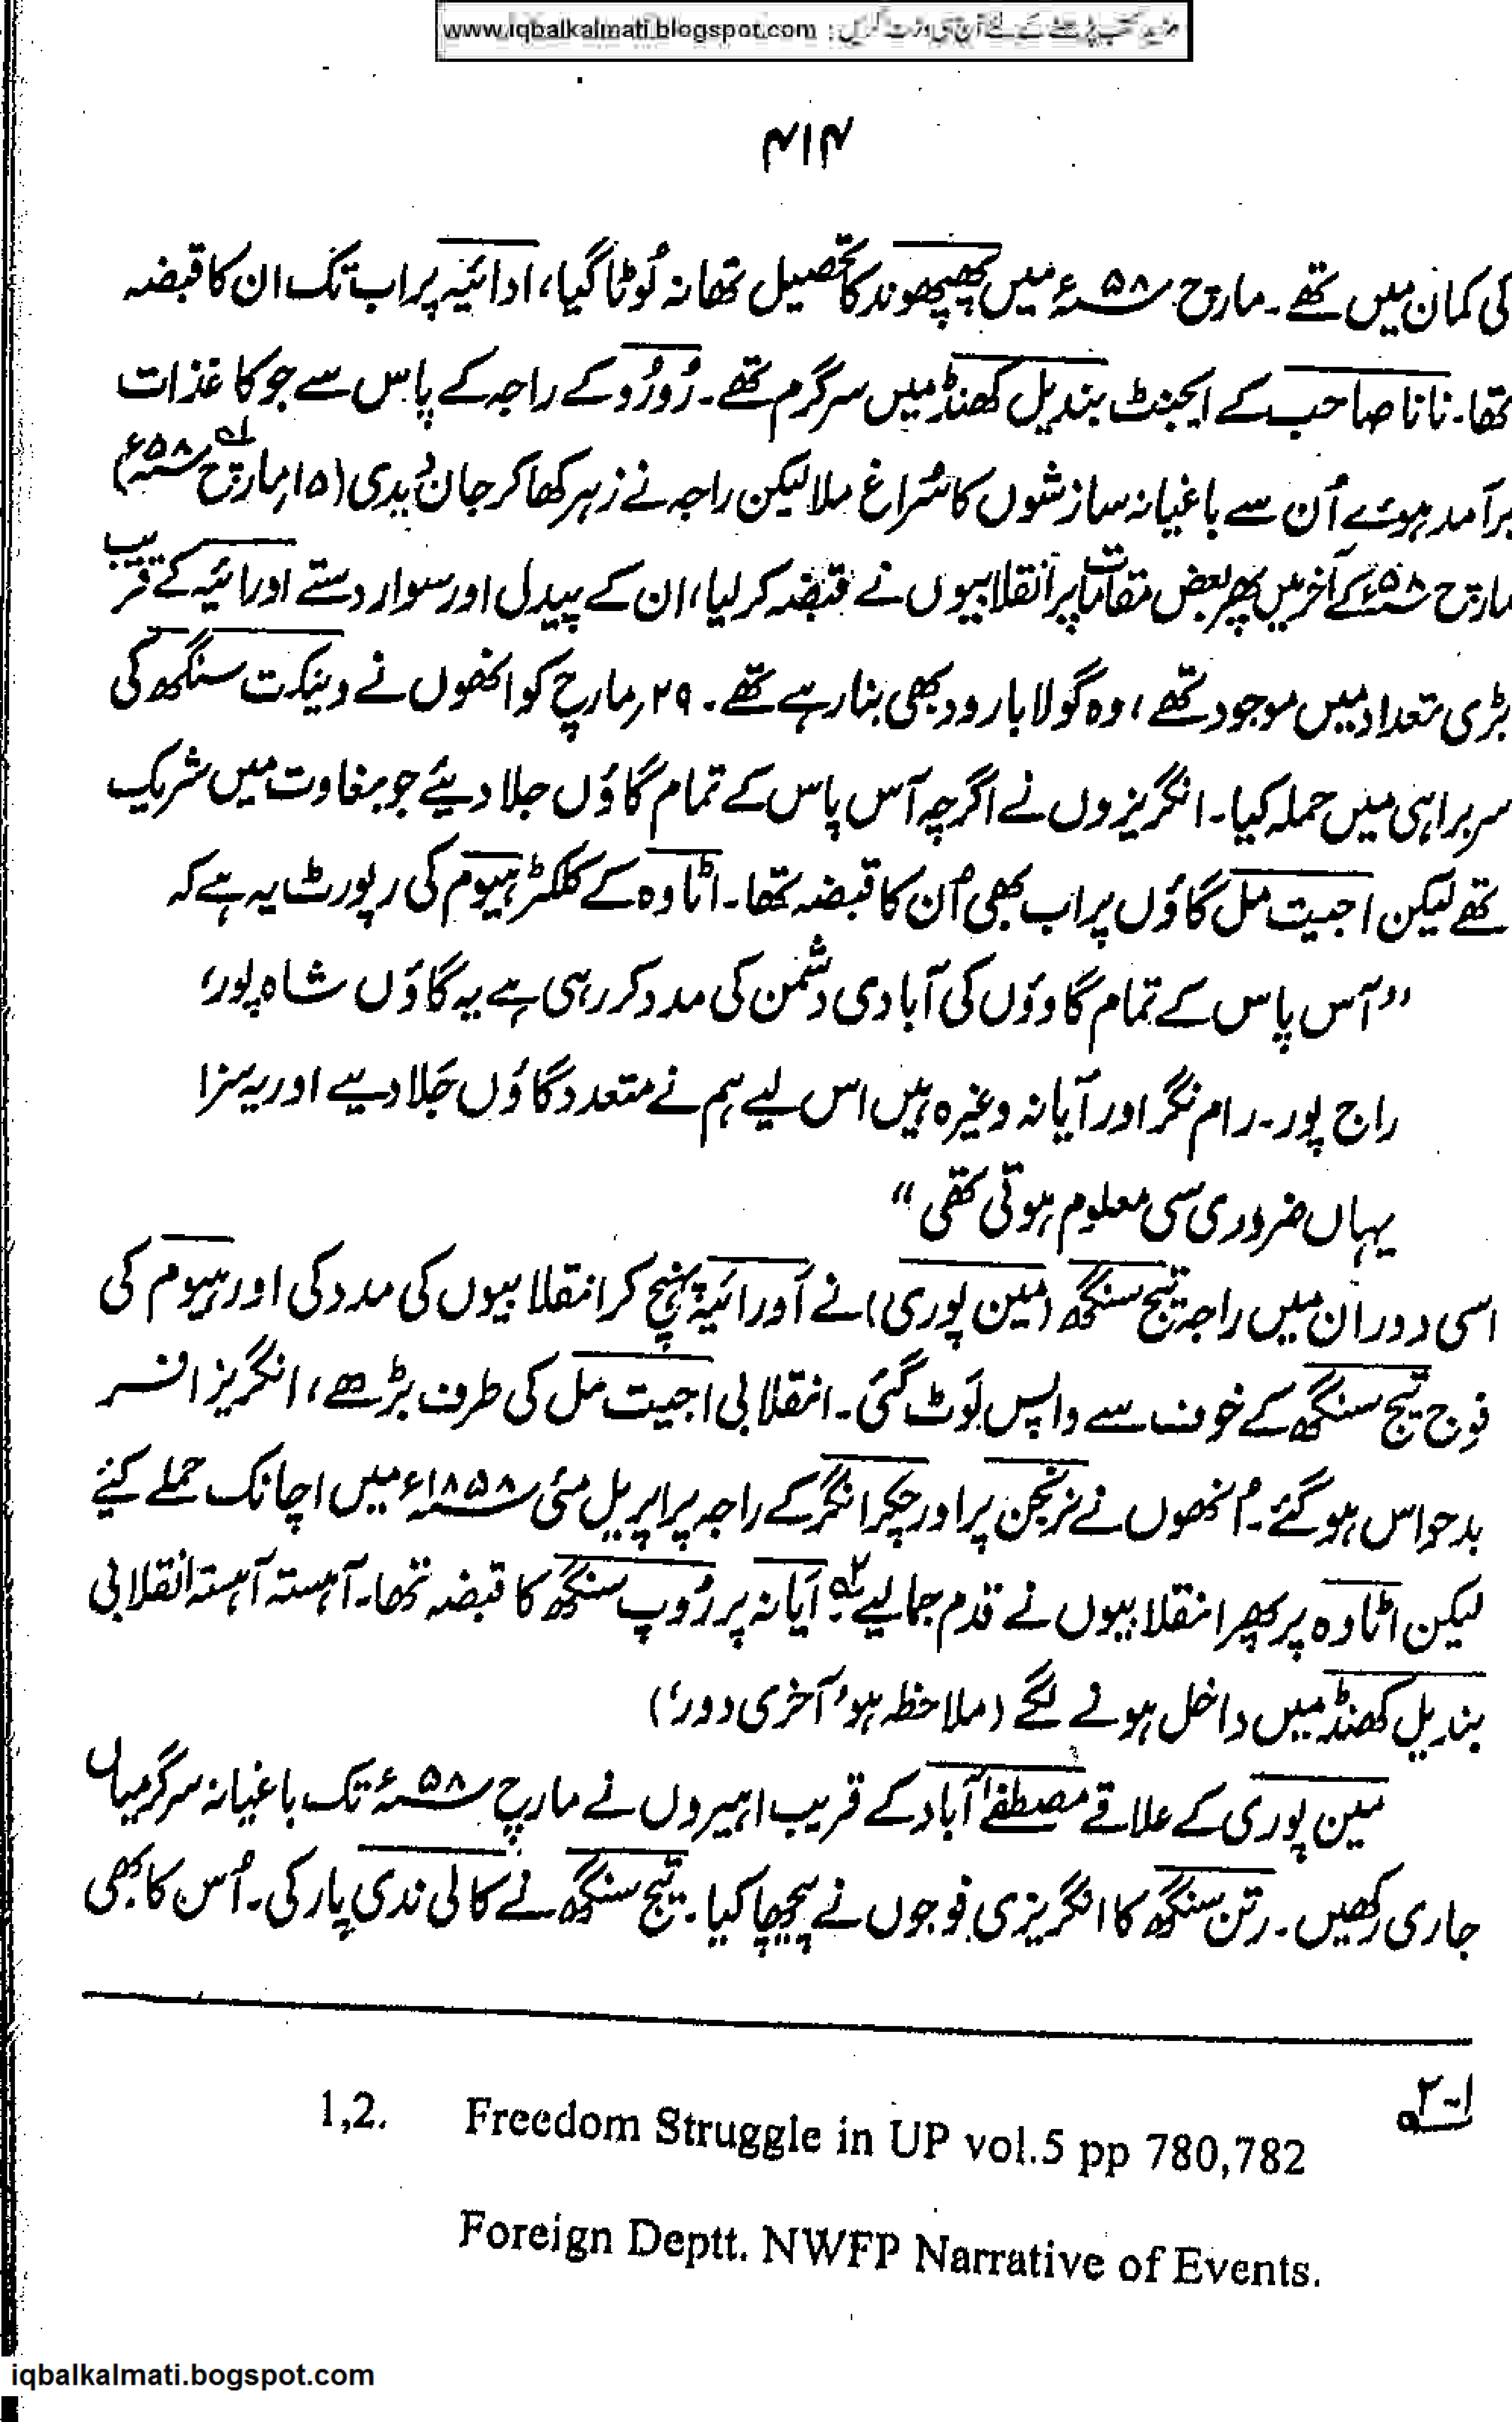 www.iqbalkalmati.blogspot.com : مزید کتب پڑھنے کے لئے آج ہی وزٹ کریں
۴۱۴
کی کمان میں تھے۔ مارچ ۵۸ء میں پھپھوند کا تحصیل تھانہ لُوٹا گیا، ادائیہ پر اب تک ان کا قبضہ
تھا۔ نانا صاحب کے ایجنٹ بندیل کھنڈ میں سرگرم تھے۔ رُورُو کے راجہ کے پاس سے جو کاغذات
برآمد ہوئے اُن سے باغیانہ سازشوں کا سُراغ ملا لیکن راجہ نے زہر کھا کر جان دیدی (۱۵؍ مارچ ۵۸ء)۱؎
مارچ ۵۸ء کے آخر میں پھر بعض مقامات پر انقلابیوں نے قبضہ کر لیا، ان کے پیدل اور سوار دستے اورائیہ کے قریب
بڑی تعداد میں موجود تھے، وہ گولا بارود بھی بنا رہے تھے۔ ۲۹؍ مارچ کو انھوں نے دینکت سنگھ کی
سربراہی میں حملہ کیا۔ انگریزوں نے اگرچہ آس پاس کے تمام گاؤں جلا دیئے جو بغاوت میں شریک
تھے لیکن اجیت مل گاؤں پر اب بھی اُن کا قبضہ تھا۔ اٹاوہ کے کلکٹر ہیوم کی رپورٹ یہ ہے کہ
”آس پاس کے تمام گاوؤں کی آبادی دشمن کی مدد کر رہی ہے یہ گاؤں شاہ پور،
راج پور۔ رام نگر اور آیانہ وغیرہ ہیں اس لیے ہم نے متعدد گاؤں جَلا دیے اور یہ سزا
یہاں ضروری سی معلوم ہوتی تھی“
اسی دوران میں راجہ تیج سنگھ (مین پوری) نے اَورائیہ پہنچ کر انقلابیوں کی مدد کی اور ہیوم کی
فوج تیج سنگھ کے خوف سے واپس لَوٹ گئی۔ انقلابی اجیت مل کی طرف بڑھے، انگریز افسر
بدحواس ہو گئے۔ اُنھوں نے نرنجن پر اور چکرا نگر کے راجہ پر اپریل مئی ۱۸۵۸ء میں اچانک حملے کیئے
لیکن اٹاوہ پر پھر انقلابیوں نے قدم جما لیے۲؎ اَیانہ پر رُوپ سنگھ کا قبضہ تھا۔ آہستہ آہستہ انقلابی
بندیل کھنڈ میں داخل ہونے لگے (ملاحظہ ہو ’آخری دور‘)
مین پوری کے علاقے مصطفےٰ آباد کے قریب اہیروں نے مارچ ۵۸ء تک باغیانہ سرگرمیاں
جاری رکھیں۔ رتن سنگھ کا انگریزی فوجوں نے پیچھا کیا۔ تیج سنگھ نے کالی ندی پار کی۔ اُس کا بھی
۱-۲؎
1,2. Freedom Struggle in UP vol.5 pp 780,782
Foreign Deptt. NWFP Narrative of Events.
iqbalkalmati.bogspot.com